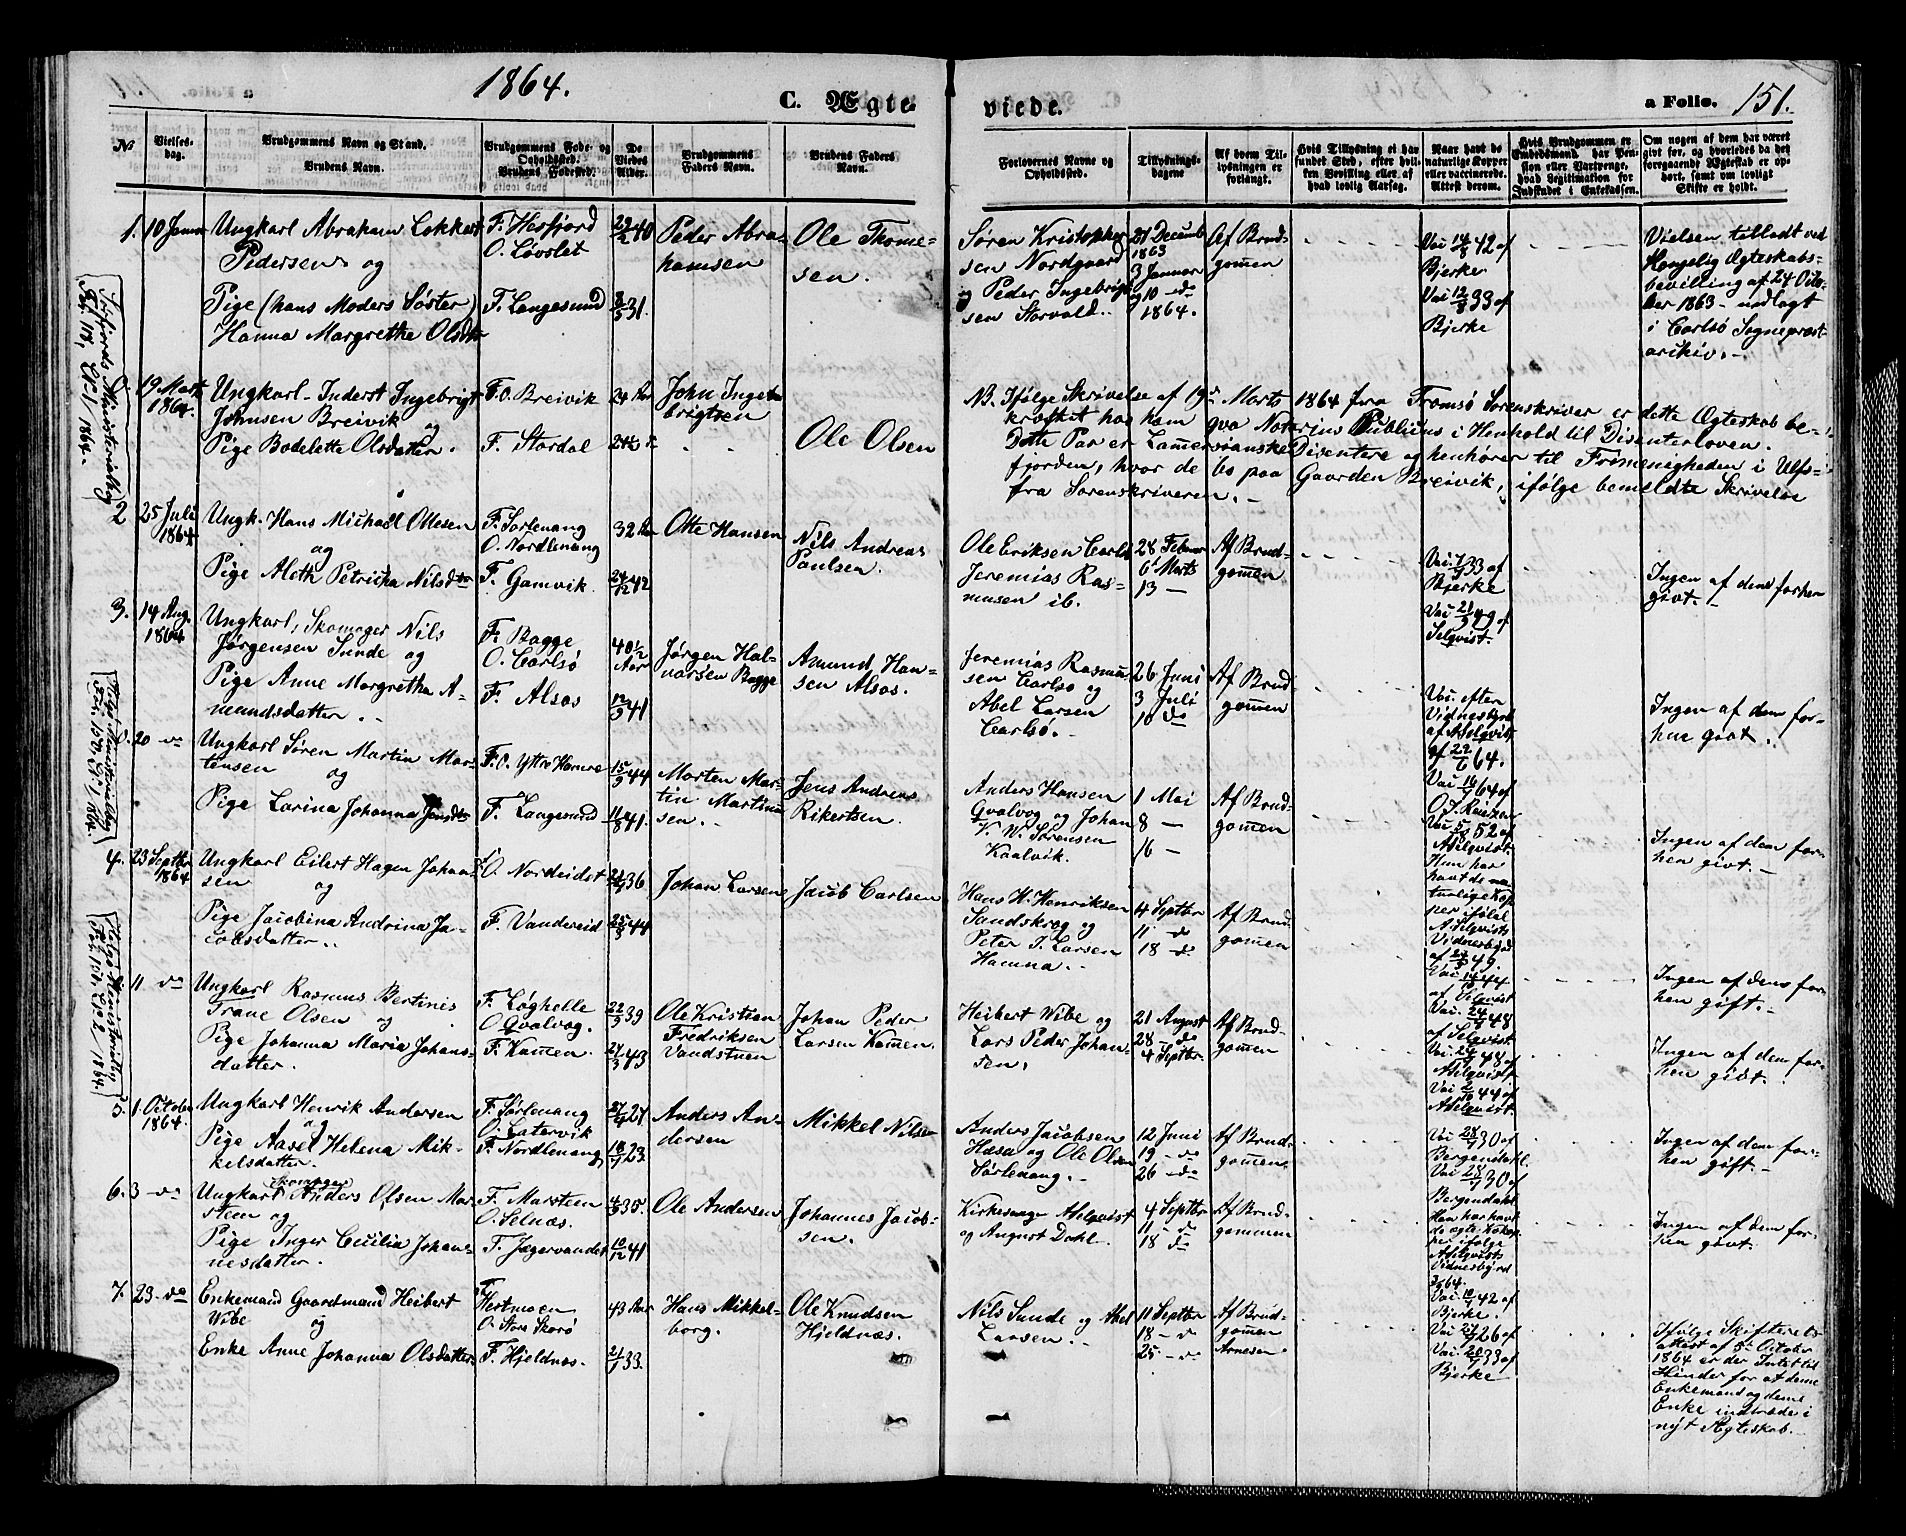 1864.
C. Ægte
viede.
a Folio. 151.
No
Vielses-
dag.
Brudgommens Navn og Stand.
Brudens Navn.
Brudgommens Føde- og
Opholdssted.
Brudens Fødested.
De
Viedes
Alder.
Brudgommens
Faders Navn.
Brudens Faders
Navn.
Forlovernes Navne og
Opholdssted.
Tillysnings-
dagene
Af hvem Til-
lysningen er
forlangt.
Hvis Tillysning ei har
fundet Sted, efter hvil-
ken Bevilling eller af
hvad lovlig Aarsag.
Naar havt de
naturlige Kopper
eller vaccinerede.
Attest derom.
Hvis Brudgommen er
Embedsmand, har Pen-
sion eller Vartpenge,
hvad Legitimation for
Indskudet i Enkekassen.
Om nogen af dem har været
gift før, og hvorledes da det
foregaaende Ægteskab er op-
hørt, samt om lovligt
Skifte er holdt.
1. 10 Januar
Ungkarl Abraham Lokkert
Pedersen og
Pige (hans Moders Søster)
Hanna Margrethe Olsdtr
F. Hersfjord
O. Løvslet
F. Langesund
29/2 40
8/5 31.
Peder Abra-
hamsen
Ole Thome-
sen.
Søren Kristopher-
sen Nordgaard
og Peder Ingebrigt-
sen Storvold.
27 Decemb
1863
3 Januar
og 10 do
1864.
Af Brud-
gommen
Vac 14/8 42 af
Bjerke
Vac 12/8 33 af
Bjerke
Vielsen tilladt ved
Kongelig Ægteskabs-
bevilling af 24 Octo-
ber 1863 - nedlagt
i Carlsø Sognepræst-
arkiv. -
19 Marts
1864.
Ungkarl Inderst Ingebrigt
Johnsen Breivik
og
Pige Bodelette Olsdatter.
F. O. Breivik
F. Stordal
24 Aar
24½ "
John Inge-
brigtsen
Ole Olsen
NB. Ifølge Skrivelse af 19de Marts 1864 fra Tromsø Sorenskriver er dette Ægteskab be-
kræftet hos ham qva Notarius Publicus i Henhold til Disenterloven.
Dette Par er Lamersianske Disentere og henhører til Frimenigheden i Ulfs-
fjorden, hvor de bo paa Gaarden Breivik, ifølge bemeldte Skrivelse
fra Sorenskriveren. -
2 25 Juli
1864
Ungk. Hans Michael Ottesen
og
Pige Aleth Petricka Nilsdtr
F. Sørlenang
O. Nordlenang
F. Gamvik
32 Aar
24/12 42
Otte Hansen
Nils Andreas
Paulsen.
Ole Eriksen Carlsø
Jeremias Ras-
musen ib.
28 Februar
6 Marts
13 -
Af Brud-
gommen
Vac 7/9 33 af
Bjerke
Ingen af dem forhen
givt. -
3. 14 Aug.
1864
Ungkarl, Skomager Nils
Jørgensen Sunde og
Pige Anne Margretha A-
mundsdatter. -
F. Bagge
O. Carlsø
F. Alsos
40½
Aar
12/9 41
Jørgen Hal-
varsen Bagge
Amund Han-
sen Alsos.
Jeremias Rasmu-
sen Carlsø og
Abel Larsen
Carlsø.
26 Juni
3 Juli
10 do
Af Brud-
gommen
Vac. efter
Vidnesbyrd
af Ahlqvist
af 22/6 64.
Ingen af dem for-
hen givt.
20 do
Ungkarl Søren Martin Mor-
tensen og
Pige Larina Johanna Jensdtr
F. O. Yttre Hamre
F. Langesund
15/9 44
11/8 41.
Morten Mar-
tin Martin-
sen. -
Jens Andreas
Rikertsen.
Anders Hansen
Qvalvog og Johan
V. W. Sørensen
Kaalvik.
1 Mai
8 -
16 -
Af Brud-
gommen
Ingen af dem for-
hen givt. -
4. 23 Septbr
1864
Ungkarl Eilert Hagen Johan-
sen og
Pige Jacobina Andrina Ja-
cobsdatter..
O. Nordeidet
F. Vandereid
25/8 44
Johan Larsen
Jacob Carlsen
Hans H. Henriksen
Sandskrog og
Peter J. Larsen
Hamna. -
4 Septbr
11 - do
18 do
Af Brud-
gommen
Hun har
havt de na-
turlige Kop-
per ifølge
Ahlqvists
Vidnesbyrd
Ingen af dem for-
hen gift. -
11 do
Ungkarl Rasmus Bertinis
Trane Olsen og
Pige Johanna Maria Johans-
datter.
F. Løghelle
O. Qvalvog.
F. Kamen.
22/3 39
24/3 43
Ole Kristian
Fredriksen
Vandstuen
Johan Peder
Larsen Kamen.
Heibert Wibe og
Lars Peder Johan-
sen.
21 August
28 do
4 Septbr
Af Brud-
gommen
Ingen af dem for-
hen givt. -
1 October
1864.
Ungkarl Henrik Andersen
og
Pige Aasel Helena Mik-
kelsdatter.
F. Sørlenang
O. Latervik
F. Nordlenang
Anders An-
dersen
Mikkel Nilsen
Anders Jacobsen
Hæsa og Ole Olsen
Sørlenang. -
12 Juni
19 - do
26 - do
Af Brud-
gommen.
Vac 28/7 30 af
Bergendahl.
Ingen af dem for-
hen gift. -
6. 3 - do
Ungkarl Skomager Anders Olsen Mar-
steen og
Pige Inger Cecilia Johan-
nesdatter.
F. Marsteen
O. Selnæs.
F. Jægervandet
10/12 41
Ole Andersen
Johannes Jacob-
sen.
Kirkesanger Ahlqvist
og August Dahl.
4 Septbr
11 - do
18 do
Af Brud-
gommen
Ingen af dem for-
hen givt.
7. 23 - do
Enkemand Gaardmand Heibert
Wibe og
Enke Anne Johanna Olsdatter
F.
Hertmoen
O. Store Skorø
F. Hjeldnæs.
43 Aar
21/1 33.
Hans Mikkel-
borg.
Ole Knudsen
Hjeldnæs.
Nils Sunde og Abel
Larsen. -
11 Septbr
18 - do
25 - do
Af Brud-
gommen
Arnesen
Bjerke
Ifølge Skifterets
Attest af 5te October
1864 er der Intet til
Hinder for at denne
Enkemand og denne
Enke indtræde i
nyt Ægteskab. -